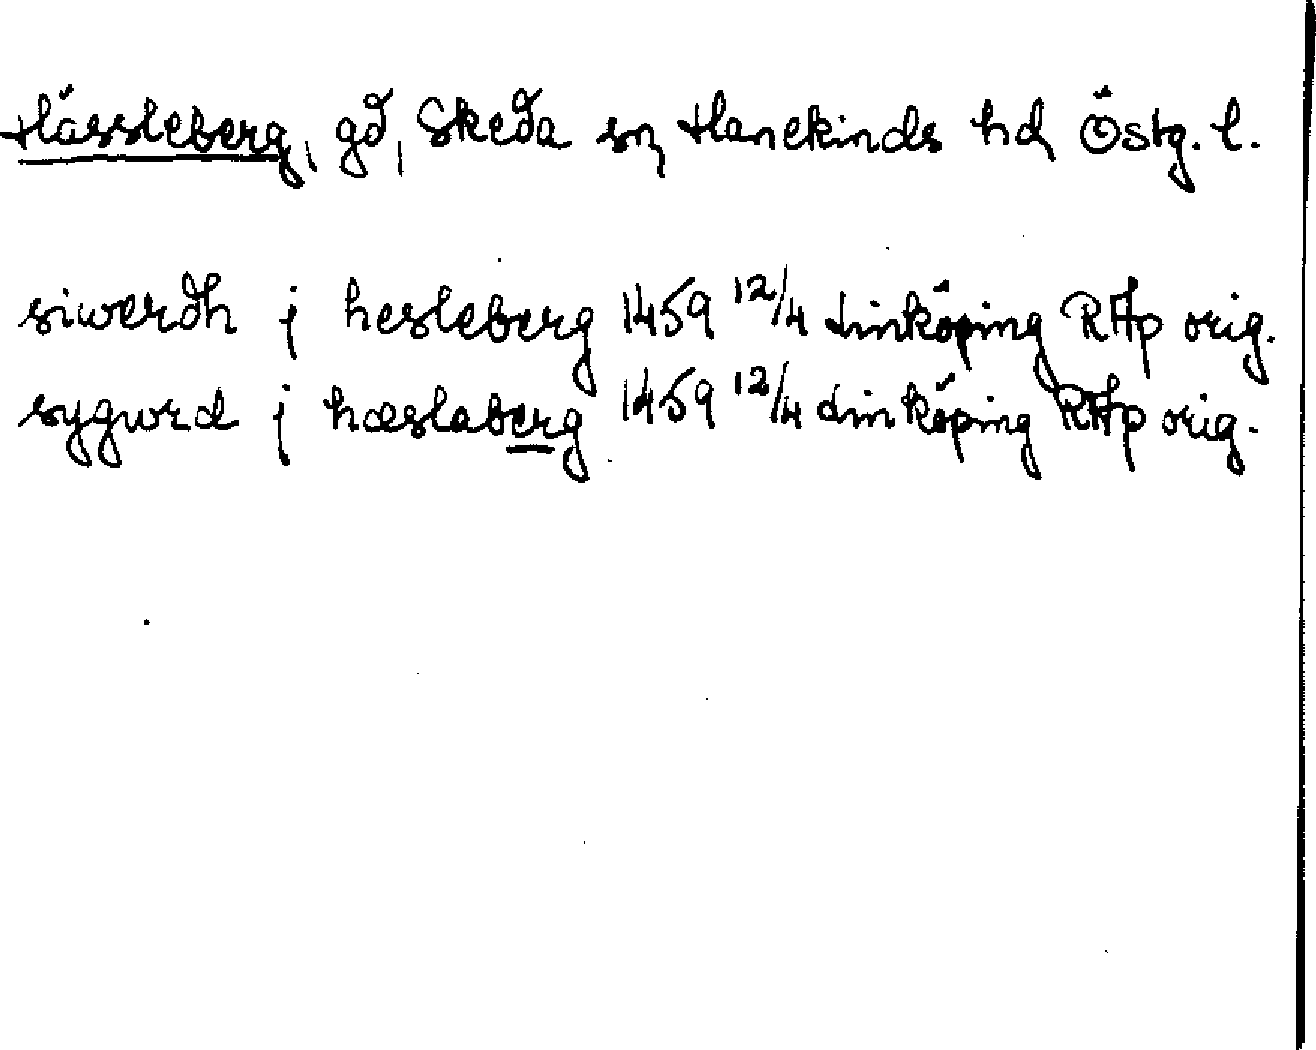 Hässleberg, gd, Skeda sn, Hanekinds hd, Östg. l.
siwerdh j hesleberg 1459 12/4 Linköping RAp orig.
sygwrd j hæslaberg 1459 12/4 Linköping RAp orig.